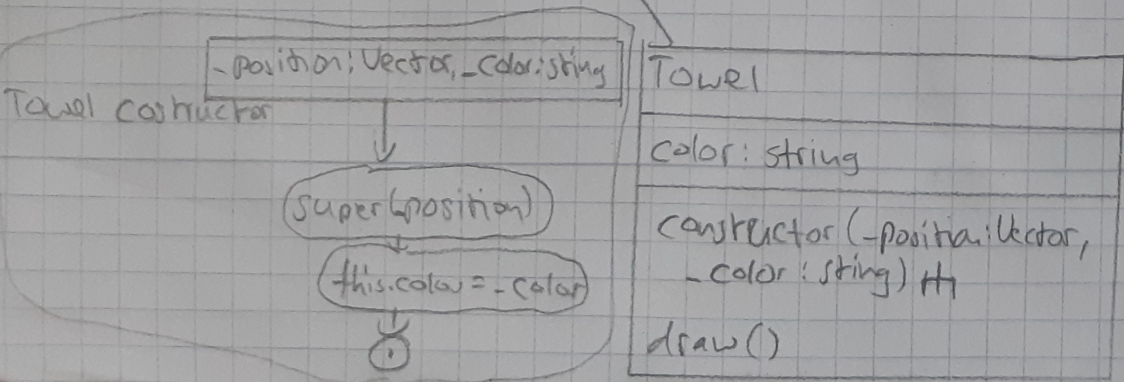 _position: Vector, _color: string
Towel cosntructor
super(_position)
this.color = _color
Towel
color: string
constructor(_position: Vector,
_color: string)
draw()